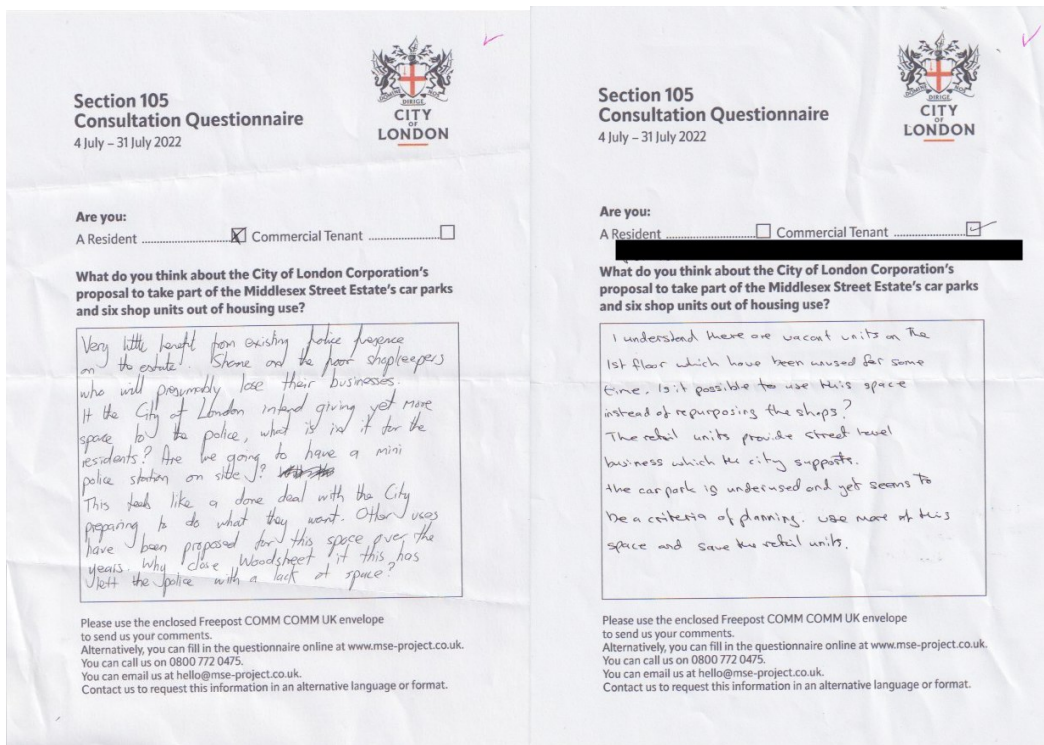 Section 105
Consultation Questionnaire
4 July – 31 July 2022
DOMINE NOS
DIRIGE
CITY
OF
LONDON
Are you:
A Resident ........................ Commercial Tenant ...................
What do you think about the City of London Corporation's
proposal to take part of the Middlesex Street Estate's car parks
and six shop units out of housing use?
Very little benefit from existing police presence
on the estate. Shame on the poor shopkeepers
who will presumably lose their businesses.
If the City of London intend giving yet more
space to the police, what is in it for the
residents? Are we going to have a mini
police station on site?
This feels like a done deal with the City
preparing to do what they want. Other uses
have been proposed for this space over the
years. Why close Woodsheet if this has
left the police with a lack of space?
Please use the enclosed Freepost COMM COMM UK envelope
to send us your comments.
Alternatively, you can fill in the questionnaire online at www.mse-project.co.uk.
You can call us on 0800 772 0475.
You can email us at hello@mse-project.co.uk.
Contact us to request this information in an alternative language or format.
Section 105
Consultation Questionnaire
4 July – 31 July 2022
DOMINE NOS
DIRIGE
CITY
OF
LONDON
Are you:
A Resident ................................ Commercial Tenant ...................
What do you think about the City of London Corporation's
proposal to take part of the Middlesex Street Estate's car parks
and six shop units out of housing use?
I understand there are vacant units on the
1st floor which have been unused for some
time. Is it possible to use this space
instead of repurposing the shops?
The retail units provide street level
business which the city supports.
the car park is underused and yet seems to
be a criteria of planning. use more of this
space and save the retail units.
Please use the enclosed Freepost COMM COMM UK envelope
to send us your comments.
Alternatively, you can fill in the questionnaire online at www.mse-project.co.uk.
You can call us on 0800 772 0475.
You can email us at hello@mse-project.co.uk.
Contact us to request this information in an alternative language or format.